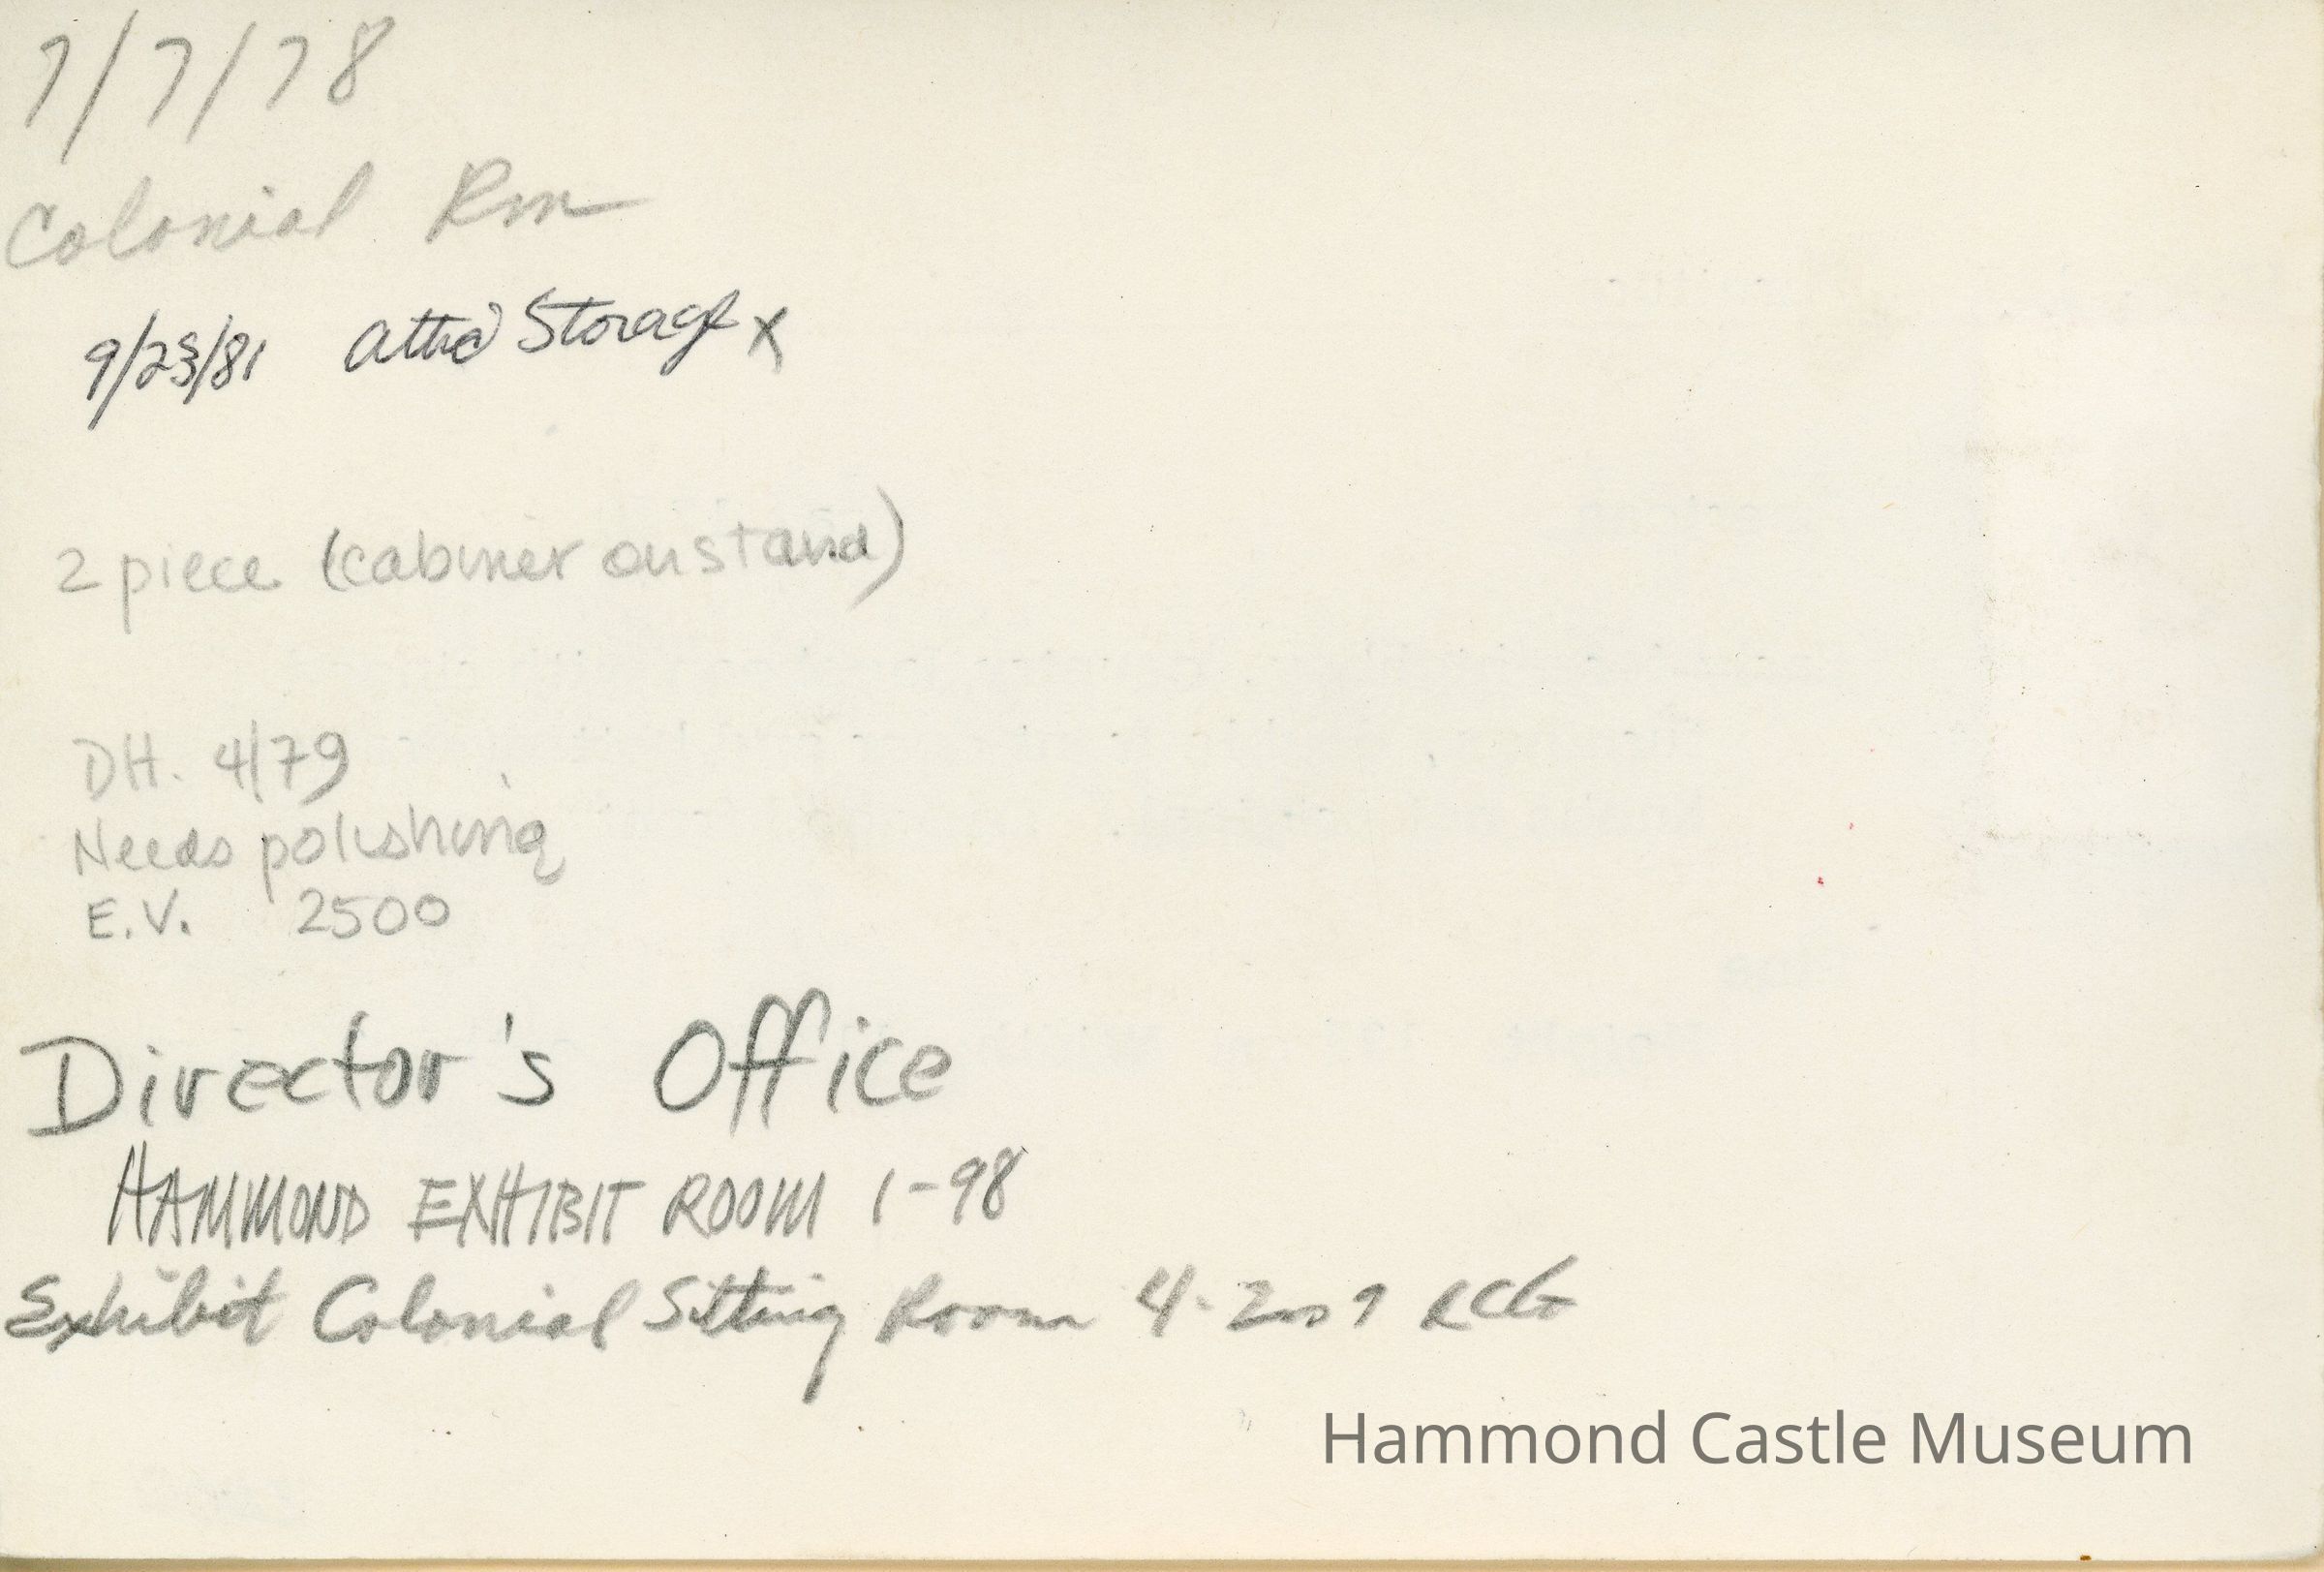 7/7/78
Colonial Rm
9/23/81 Attic Storage x
2 piece (cabinet on stand)
DH. 4/79
Needs polishing
E.V. 2500
Director's Office
HAMMOND EXHIBIT ROOM 1-98
Exhibit Colonial Sitting Room 4-2009 RCG
Hammond Castle Museum